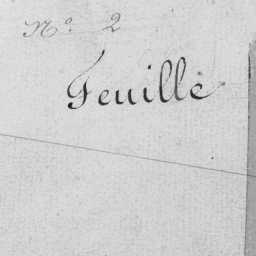 Nº. 2
Feuille